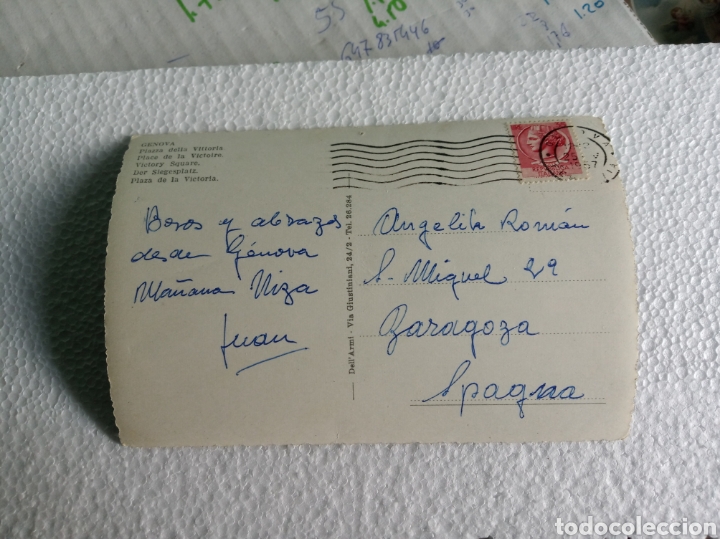 55
4.10
1.20
647 835446
GENOVA
Piazza della Vittoria
Place de la Victoire.
Victory Square.
Der Siegesplatz.
Plaza de la Victoria.
Besos y abrazos
desde Génova
Mañana Niza
Juan
Dell'Armi - Via Giustiniani, 24/2 - Tel. 26.284
Angelita Román
S. Miguel 29
Zaragoza
Spagna
todocoleccion